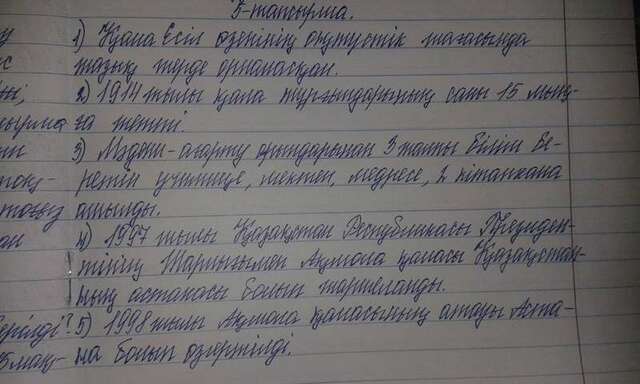 3-тапсырма.
1) Қала Есіл өзенінің оңтүстік жағасында
тазық жерде орналасқан.
2) 1914 жылы қала тұрғындарының саны 15 мың-
ырма ға жетті.
3) Мәдени-ағарту орындарынан 3 жалпы білім бе-
ретін училище, мектеп, медресе, 2 кітапхана
ашылды.
4) 1997 жылы Қазақстан Республикасы Президен-
тінің Жарлығымен Ақмола қаласы Қазақстан-
ның астанасы болып жарияланды.
ерілді? 5) 1998 жылы Ақмола қаласының атауы Аста-
на болып өзгертілді.